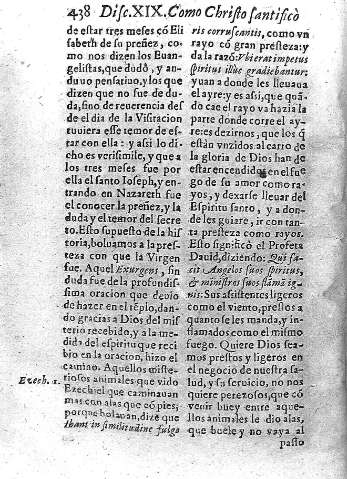 438 Disc.XIX. Como Christo santificò
de estar tres meses cõ Eli
sabeth de su preñez, co
mo nos dizen los Euan-
gelistas, que dudò, y an-
duuo pensatiuo, y los que
dizen que no fue de du-
da, sino de reuerencia des
de el dia de la Visitacion
tuuiera esse temor de es-
tar con ella: y assi lo di
cho es verisimile, y que a
los tres meses fue por
ella el santo Ioseph, y en-
trando en Nazareth fue
el conocer la preñez, y la
duda y el temor del secre
to. Esto supuesto de la hi-
storia, boluamos a la pres-
teza con que la Virgen
fue. Aquel Exurgens, sin
duda fue de la profundis-
sima oracion que deuio
de hazer en el tẽplo, dan-
do gracias a Dios del mis
terio recebido, y a la me-
dida del espiritu que reci
bio en la oracion, hizo el
camino. Aquellos miste-
riosos animales que vido
Ezech. 1.
Ezechiel que caminauan
mas con alas que cõ pies,
porque bolauan, dize que
Ibant in similitudine fulgo
ris corruscantis, como vn
rayo cõ gran presteza: y
da la razõ: Vbi erat impetus
spiritus illuc gradiebantur:
yuan a donde les lleuaua
el ayre: y es assi, que quã-
do cae el rayo va hazia la
parte donde corre el ay-
re: es dezirnos, que los q̃
están vnzidos al carro de
la gloria de Dios han de
estar encendidos en el fue
go de su amor como ra-
yos, y dexarse lleuar del
Espiritu santo, y a don-
de les guiare, ir con tan-
ta presteza como rayos.
Esto significó el Profeta
Dauid, diziendo: Qui fa-
cit Angelos suos spiritus,
& ministros suos flamã ig-
nis: Sus asistentes ligeros
como el viento, prestos a
quanto se les manda, y in-
flamados como el mismo
fuego. Quiere Dios sea-
mos prestos y ligeros en
el negocio de nuestra sa-
lud, y su seruicio, no nos
quiere perezosos, que cõ
venir buey entre aque-
llos animales le dio alas,
que buele y no vaya al
passo